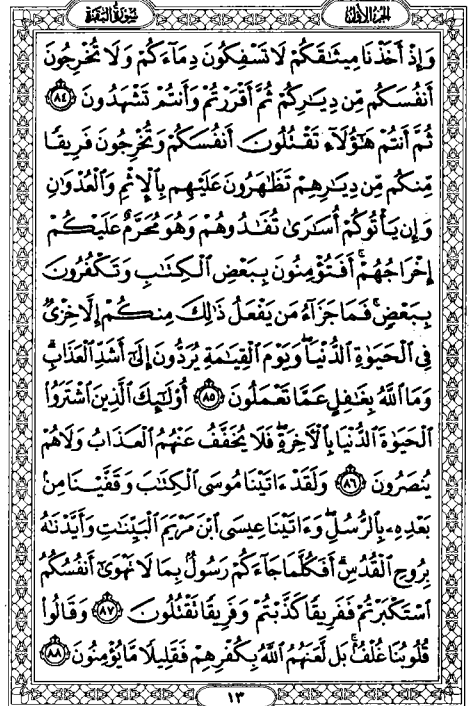 سُورَةُ البَقَرَةِ
الجزء الأول
وَإِذْ أَخَذْنَا مِيثَٰقَكُمْ لَا تَسْفِكُونَ دِمَآءَكُمْ وَلَا تُخْرِجُونَ
أَنفُسَكُم مِّن دِيَٰرِكُمْ ثُمَّ أَقْرَرْتُمْ وَأَنتُمْ تَشْهَدُونَ ٨٤
ثُمَّ أَنتُمْ هَٰٓؤُلَآءِ تَقْتُلُونَ أَنفُسَكُمْ وَتُخْرِجُونَ فَرِيقًا
مِّنكُم مِّن دِيَٰرِهِمْ تَظَٰهَرُونَ عَلَيْهِم بِٱلْإِثْمِ وَٱلْعُدْوَٰنِ
وَإِن يَأْتُوكُمْ أُسَٰرَىٰ تُفَٰدُوهُمْ وَهُوَ مُحَرَّمٌ عَلَيْكُمْ
إِخْرَاجُهُمْ ۚ أَفَتُؤْمِنُونَ بِبَعْضِ ٱلْكِتَٰبِ وَتَكْفُرُونَ
بِبَعْضٍ ۚ فَمَا جَزَآءُ مَن يَفْعَلُ ذَٰلِكَ مِنكُمْ إِلَّا خِزْىٌ
فِى ٱلْحَيَوٰةِ ٱلدُّنْيَا ۖ وَيَوْمَ ٱلْقِيَٰمَةِ يُرَدُّونَ إِلَىٰٓ أَشَدِّ ٱلْعَذَابِ ۗ
وَمَا ٱللَّهُ بِغَٰفِلٍ عَمَّا تَعْمَلُونَ ٨٥ أُو۟لَٰٓئِكَ ٱلَّذِينَ ٱشْتَرَوُا۟
ٱلْحَيَوٰةَ ٱلدُّنْيَا بِٱلْءَاخِرَةِ ۖ فَلَا يُخَفَّفُ عَنْهُمُ ٱلْعَذَابُ وَلَا هُمْ
يُنصَرُونَ ٨٦ وَلَقَدْ ءَاتَيْنَا مُوسَى ٱلْكِتَٰبَ وَقَفَّيْنَا مِنۢ
بَعْدِهِۦ بِٱلرُّسُلِ ۖ وَءَاتَيْنَا عِيسَى ٱبْنَ مَرْيَمَ ٱلْبَيِّنَٰتِ وَأَيَّدْنَٰهُ
بِرُوحِ ٱلْقُدُسِ ۗ أَفَكُلَّمَا جَآءَكُمْ رَسُولٌۢ بِمَا لَا تَهْوَىٰٓ أَنفُسُكُمُ
ٱسْتَكْبَرْتُمْ فَفَرِيقًا كَذَّبْتُمْ وَفَرِيقًا تَقْتُلُونَ ٨٧ وَقَالُوا۟
قُلُوبُنَا غُلْفٌۢ ۚ بَل لَّعَنَهُمُ ٱللَّهُ بِكُفْرِهِمْ فَقَلِيلًا مَّا يُؤْمِنُونَ ٨٨
١٣